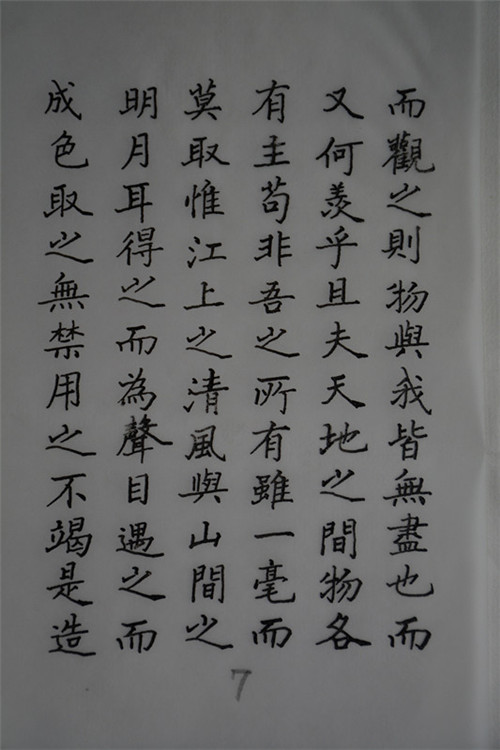 而觀之則物與我皆無盡也而
又何羨乎且夫天地之間物各
有主苟非吾之所有雖一毫而
莫取惟江上之清風與山間之
明月耳得之而為聲目遇之而
成色取之無禁用之不竭是造
7